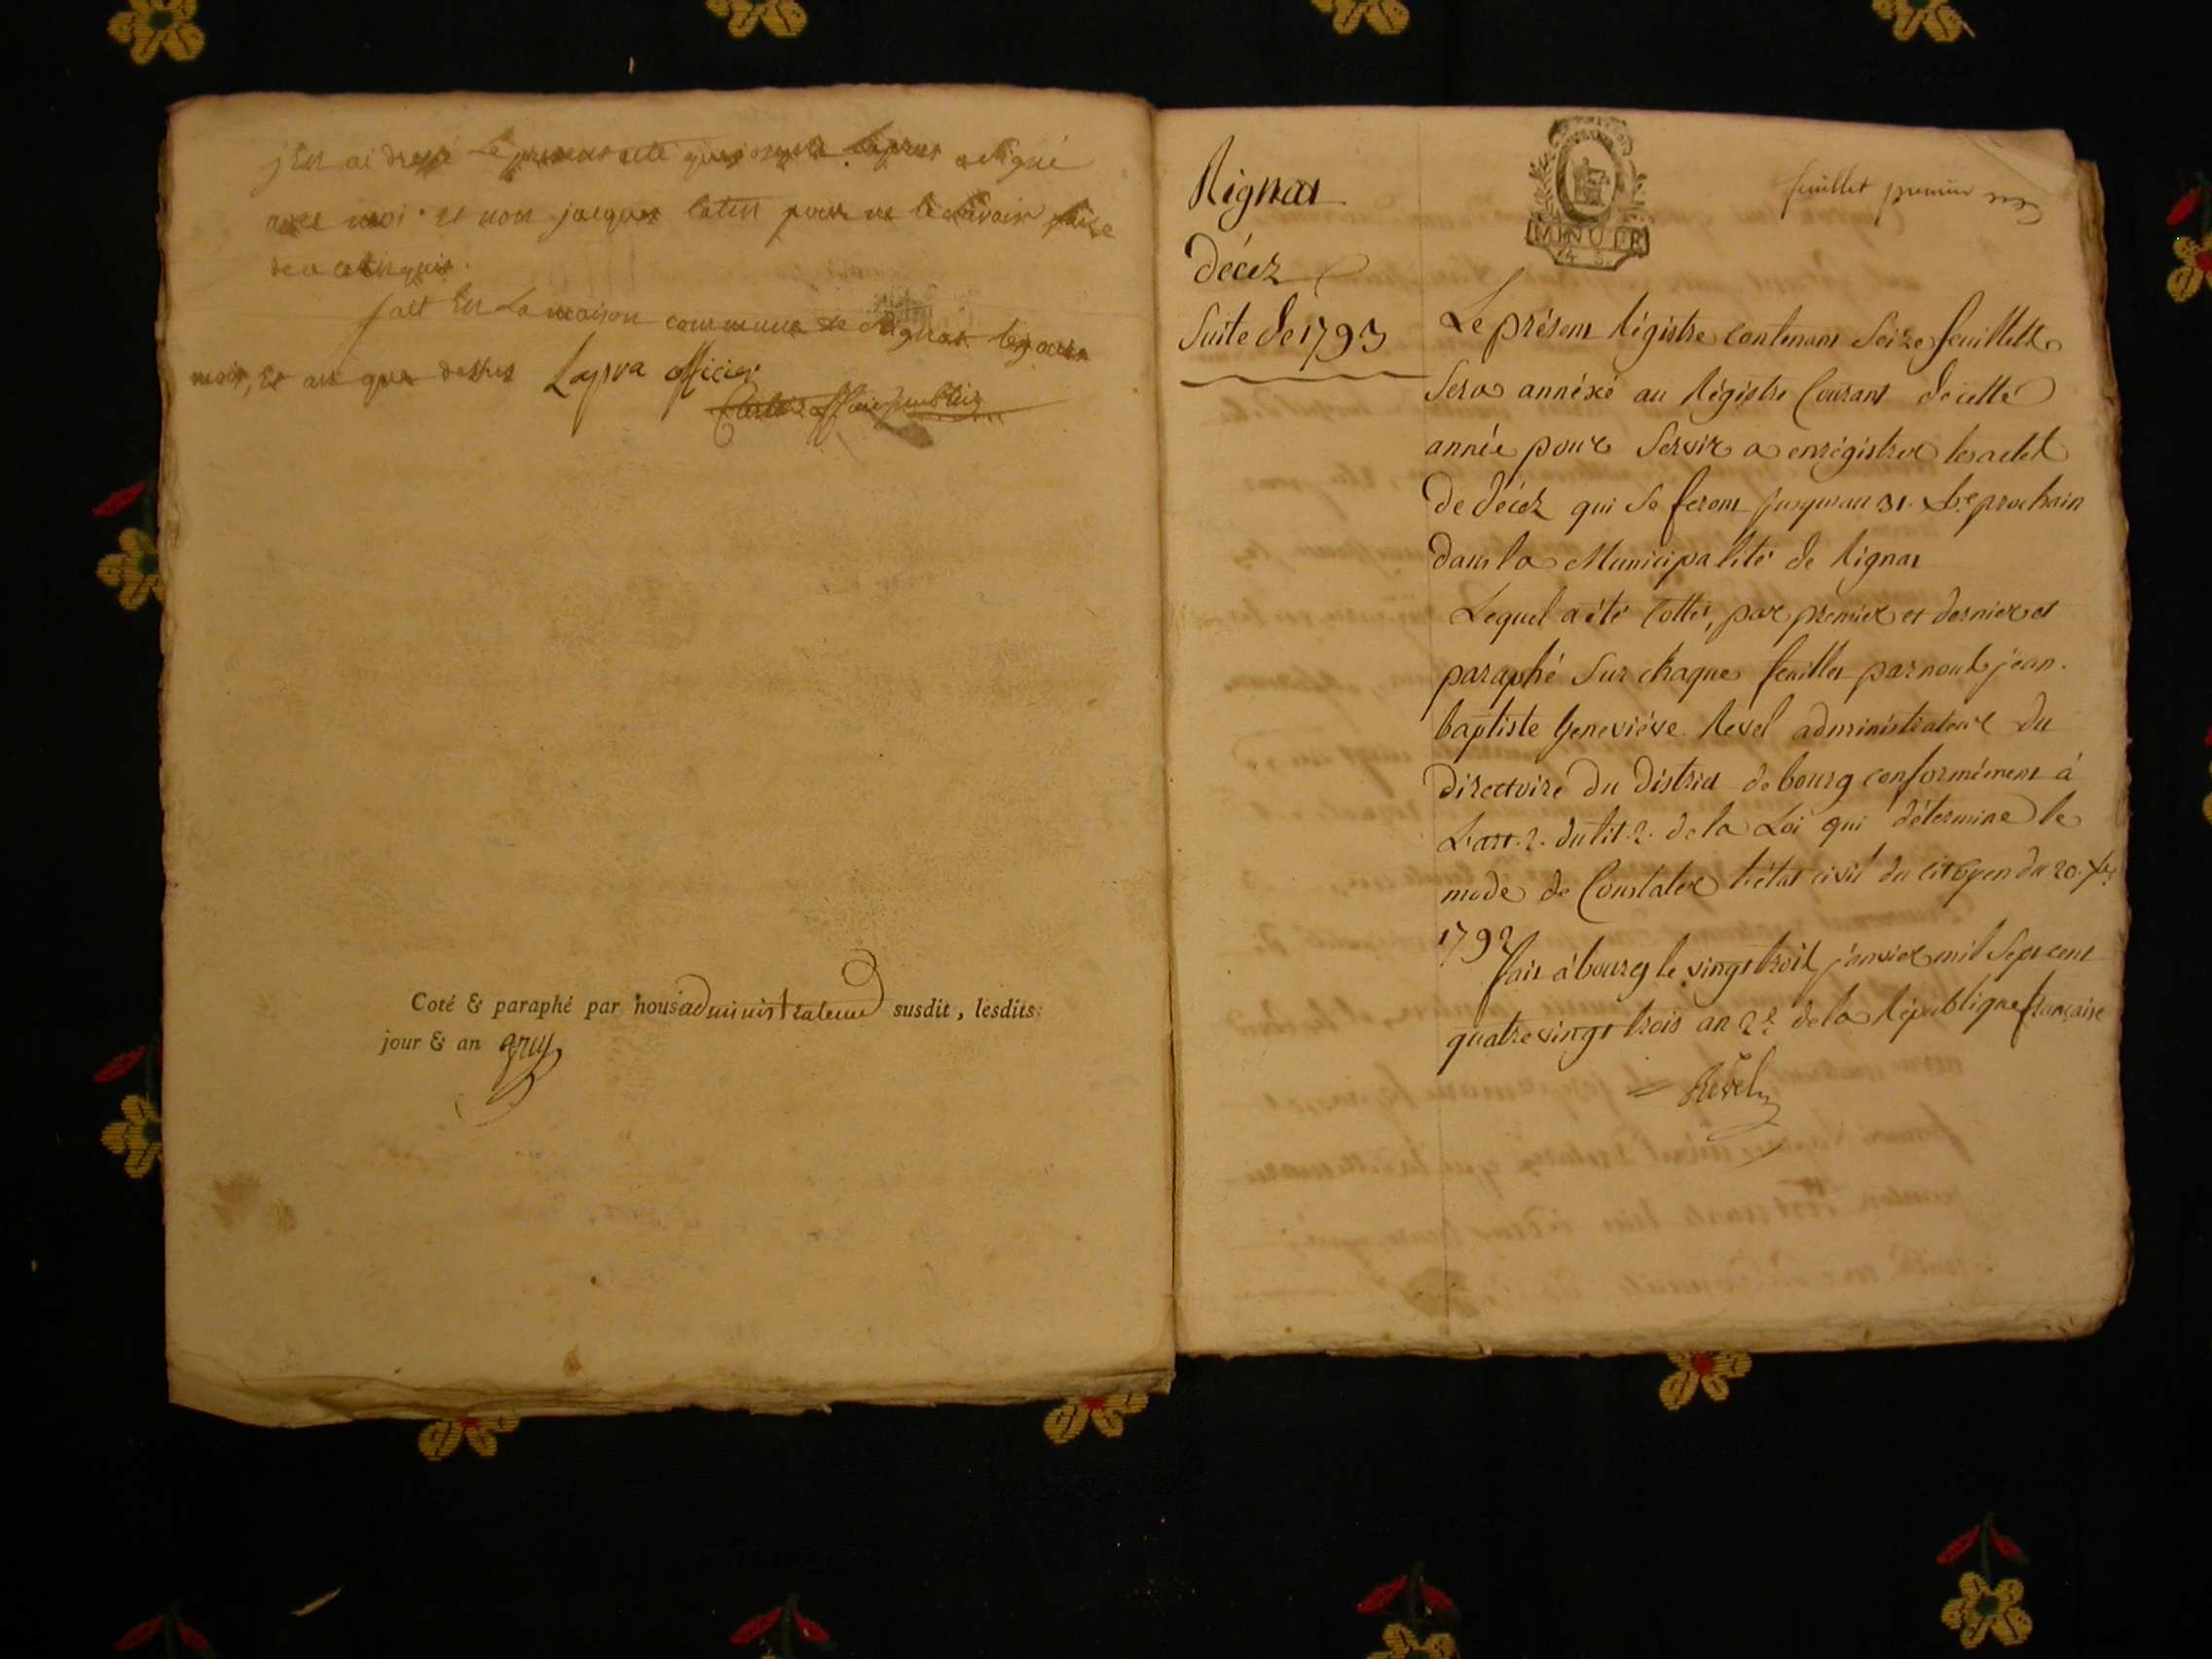 j'En ai dressé Le present acte que joseph Layrat a signé
avec moi et non jacques catin pour ne le savoir faire
de ce enquis.
fait En La maison commune de Rignat les jour
mois, Et an que dessus Layrva officier
officier public
Coté & paraphé par nous administrateur susdit, lesdits
jour & an gruy
Rignat
Décez
Suite de 1793
MINUTE
4 s.
feuillet premier
Le présent Régistre contenant Seize feuillets
Sera annéxé au Régistre Courant de cette
année pour Servir a enrégistrer les actes
De décez qui Se feront jusqu'au 31. xbre prochain
Dans la Municipalité de Rignat
Lequel a été Cottés, par premier et dernier et
paraphé Sur chaque feuillet par nous jean-
baptiste Geneviéve Revel administrateur Du
Directoire Du District de bourg conformément à
L'art. 2. du tit. 2. de la Loi qui détermine le
mode de Constater l'état civil du citoyen du 20. 7bre
1792
fait à bourg le vingt trois janvier mil Sept cent
quatre vingt trois an 2e de la République française
Revel